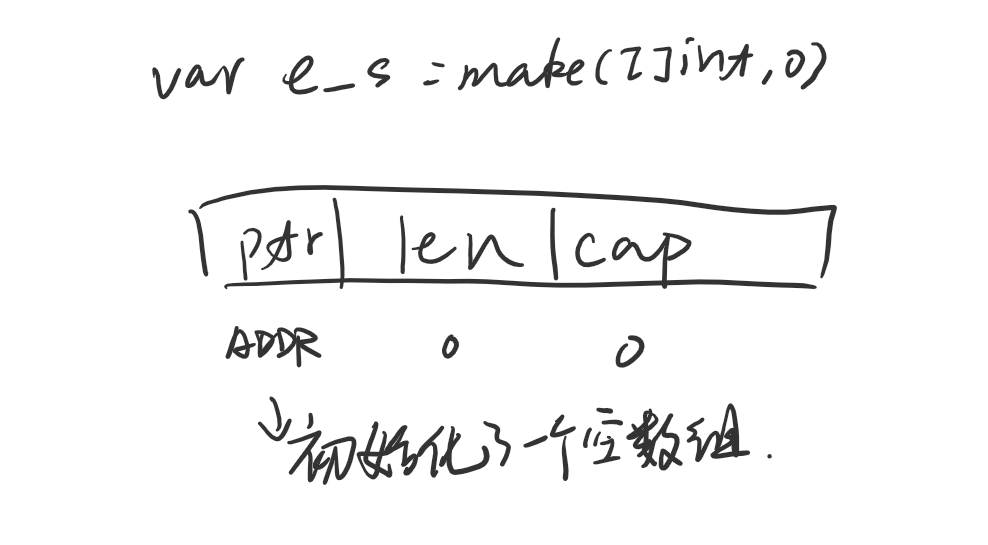 var e_s = make([]int, 0)
ptr len cap
ADDR 0 0
初始化了一个空数组.